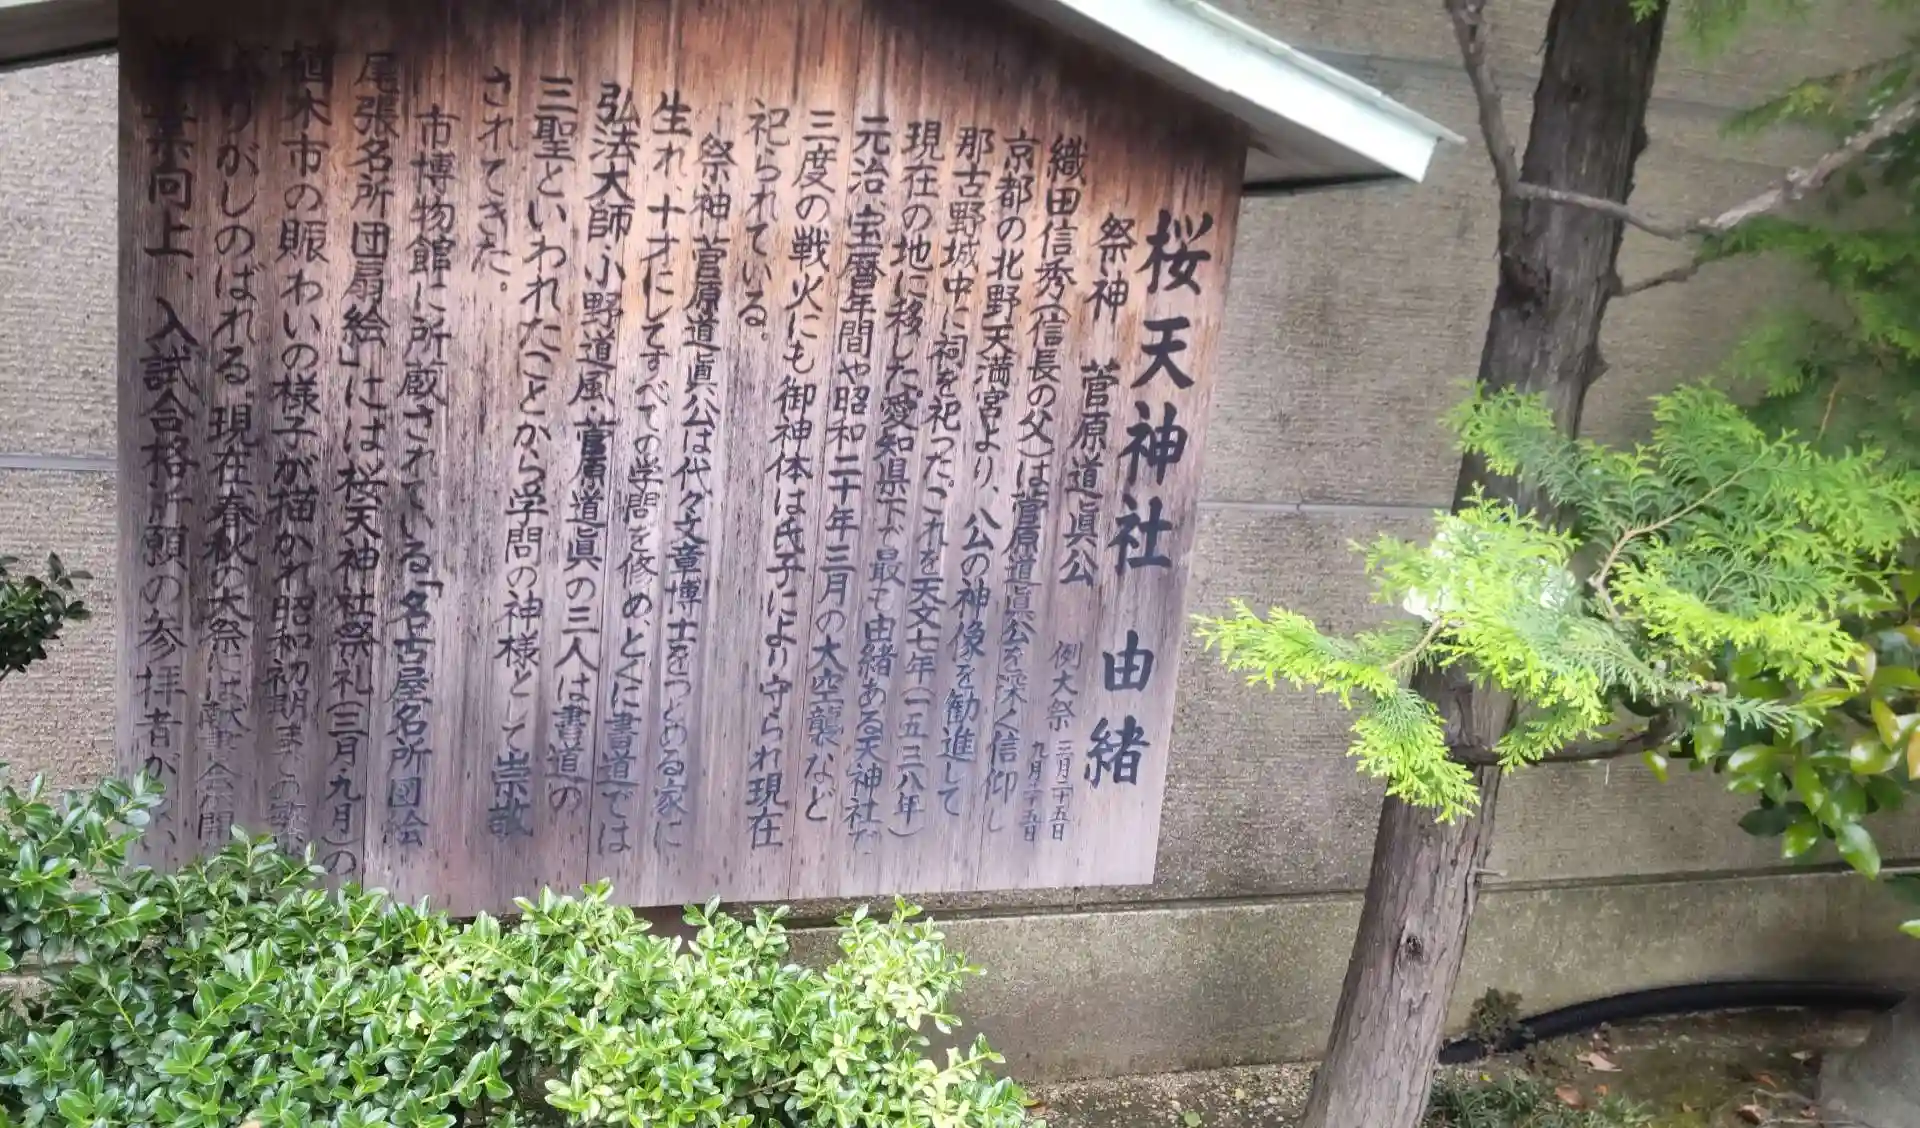 桜天神社 由緒
祭神 菅原道眞公 例大祭 二月二十五日
九月二十五日
織田信秀(信長の父)は菅原道眞公を深く信仰し
京都の北野天満宮より、公の神像を勧進して
那古野城中に祠を祀った。これを天文七年(一五三八年)
現在の地に移した。愛知県下で最も由緒ある天神社だ
元治、宝暦年間や昭和二十年三月の大空襲など
三度の戦火にも御神体は氏子により守られ現在
祀られている。
祭神 菅原道眞公は代々文章博士をつとめる家に
生れ、十才にしてすべての学問を修め、とくに書道では
弘法大師・小野道風・菅原道眞の三人は書道の
三聖といわれたことから学問の神様として崇敬
されてきた。
市博物館に所蔵されている「名古屋名所団絵
尾張名所団扇絵」には桜天神社祭礼(三月九月)の
植木市の賑わいの様子が描かれ昭和初期まで
りがしのばれる、現在春秋の大祭には献書会
学業向上、入試合格祈願の参拝者が